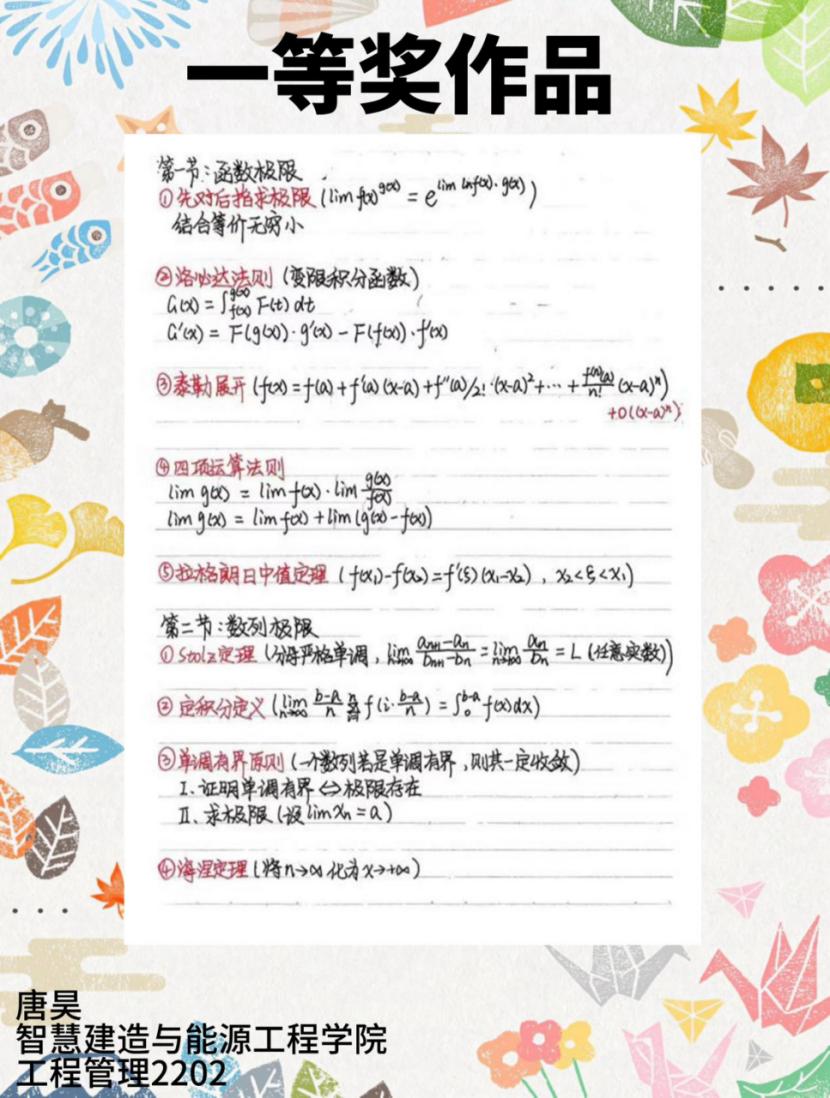 一等奖作品
第一节:函数极限
①先对后指求极限(lim f(x)^g(x) = e^lim lnf(x)·g(x))
结合等价无穷小
②洛必达法则(变限积分函数)
G(x) = ∫_f(x)^g(x) F(t) dt
G'(x) = F(g(x))·g'(x) - F(f(x))·f'(x)
③泰勒展开(f(x) = f(a) + f'(a)(x-a) + f''(a)/2!·(x-a)² + … + f^(n)(a)/n! (x-a)^n)
+o((x-a)^n);
④四项运算法则
lim g(x) = lim f(x)·lim g(x)/f(x)
lim g(x) = lim f(x) + lim (g(x) - f(x))
⑤拉格朗日中值定理(f(x₁)-f(x₂) = f'(ξ)(x₁-x₂),x₂<ξ<x₁)
第二节:数列极限
①Stolz定理(分母严格单调,lim_n→∞ (aₙ₊₁-aₙ)/(bₙ₊₁-bₙ) = lim_n→∞ aₙ/bₙ = L (任意实数))
②定积分定义(lim_n→∞ (b-a)/n Σ f(i·(b-a)/n) = ∫_0^b-a f(x)dx)
③单调有界原则(一个数列若是单调有界,则其一定收敛)
Ⅰ.证明单调有界⇔极限存在
Ⅱ.求极限(设lim xₙ = a)
④海涅定理(将n→∞化为x→+∞)
唐昊
智慧建造与能源工程学院
工程管理2202